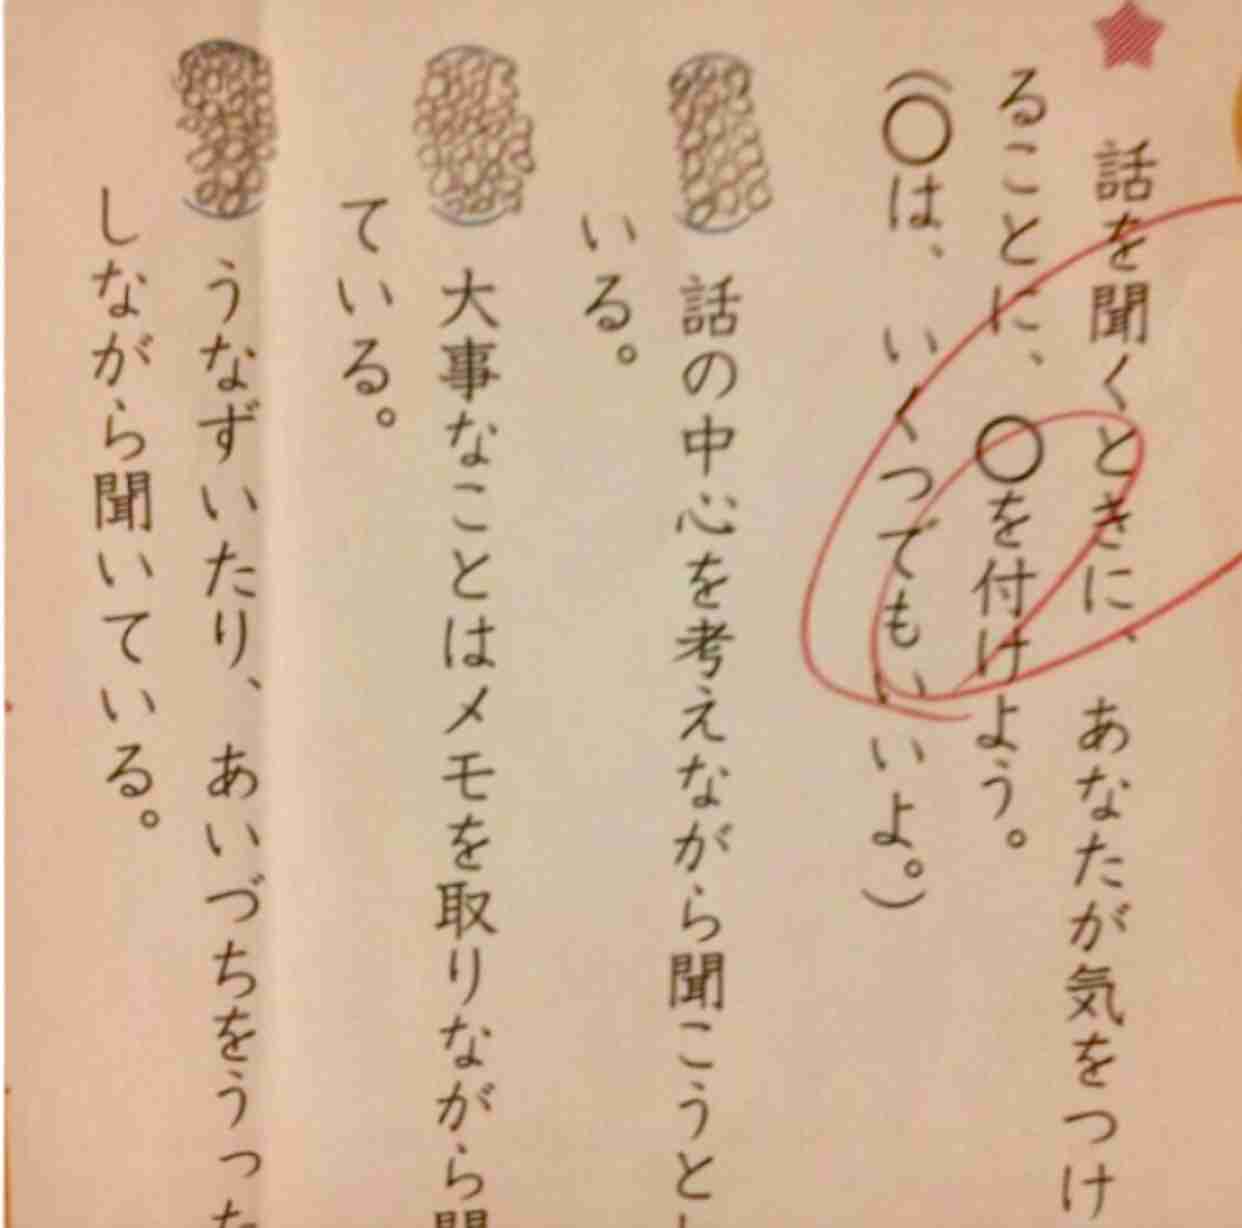 話を聞くときに、あなたが気をつけ
ることに、〇を付けよう。
(〇は、いくつでもいいよ。)
話の中心を考えながら聞こうとし
いる。
大事なことはメモを取りながら聞
ている。
うなずいたり、あいづちをうった
しながら聞いている。